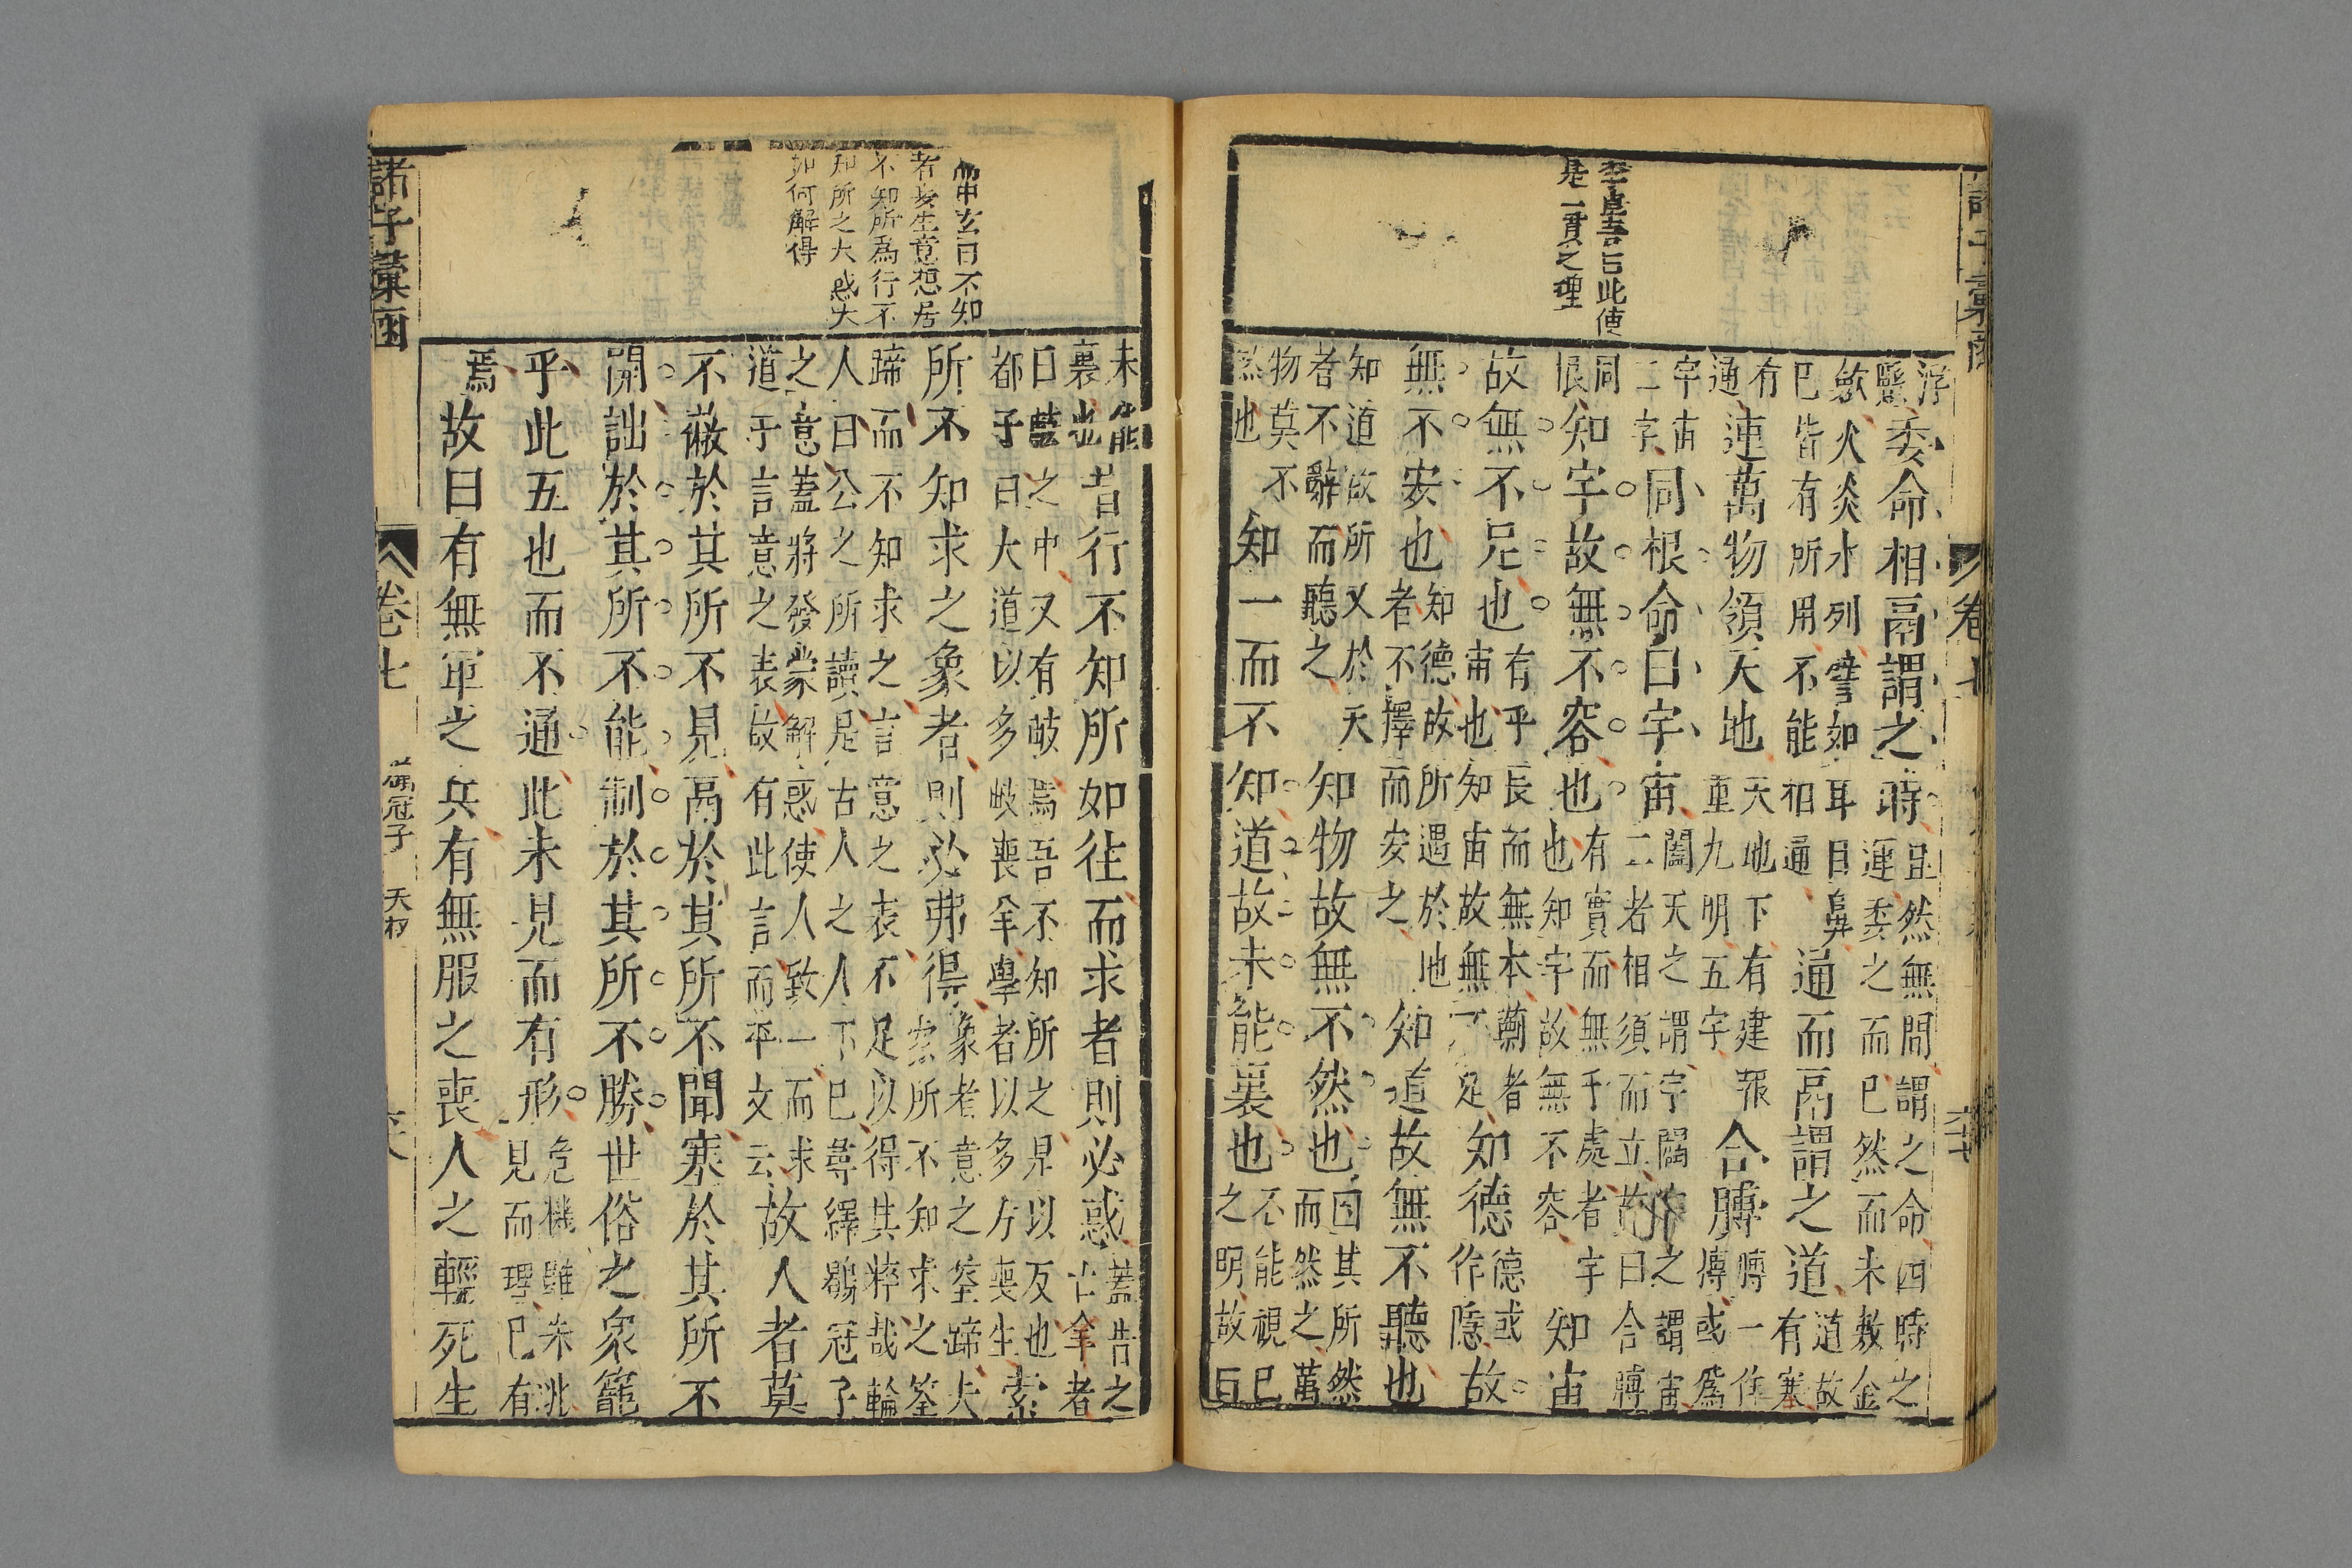 諸子彙函
卷七
李卓吾曰此使
是一貫之理
浮
繄委命相鬲謂之時且然無間謂之命四時之
運委之而已然而未數金
散火炎水列譬如耳目鼻
已皆有所用不能相通通而鬲謂之道道故
有塞
有
通連萬物領天地天地下有建報
重九明五字合膊膊一作
傳或爲
宇宙
二字同根命曰宇宙闔天之謂宇闢作之謂宙
二者相須而立故曰合膊
同
根知宇故無不容也有實而無乎處者宇
也知宇故無不容知宙
故無不足也有乎長而無本薊者
宙也知宙故無不足知德德或
作隱故
無不安也知德故所遇於地
者不擇而安之知道故無不聽也
知道故所又於天
者不辭而聽之知物故無不然也因其所然
而然之萬
物莫不
然也知一而不知道故未能裏也不能視已
之明故曰
未能
裏也昔行不知所如往而求者則必惑蓋告之
古全者
曰藍之中又有岐焉吾不知所之是以反也
都子曰大道以多岐喪全學者以多方喪生索
所不知求之象者則必弗得象者意之筌蹄夫
索所不知求之筌
蹄而不知求之言意之表不足以得其粹哉輪
人曰公之所讀是古人之人下已尋繹鶡冠子
之意蓋將發蒙解惑使人致一而求
道于言意之表故有此言而平文云故人者莫
不蔽於其所不見鬲於其所不聞塞於其所不
開詘於其所不能制於其所不勝世俗之衆籠
乎此五也而不通此未見而有形危機雖未兆
見而理已有
焉故曰有無軍之兵有無服之喪人之輕死生
高中玄曰不知
者妄生意想居
不知所爲行不
知所之大惑大
如何解得
諸子彙函
卷七
鶡冠子
天權